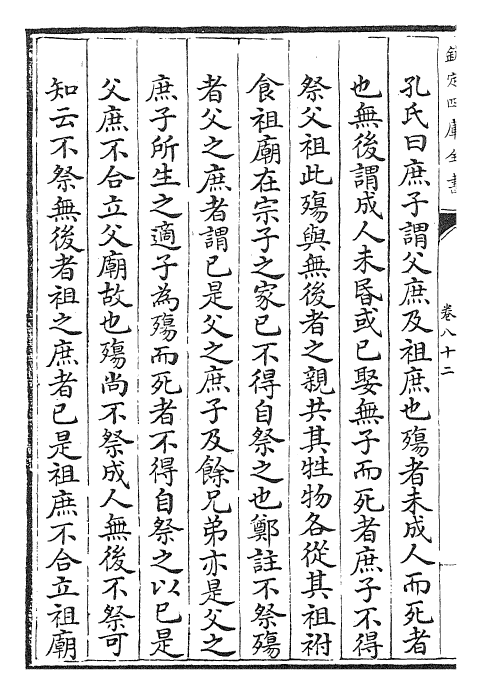 欽定四庫全書
卷八十二
孔氏曰庶子謂父庶及祖庶也殤者未成人而死者
也無後謂成人未昬或已娶無子而死者庶子不得
祭父祖此殤與無後者之親共其牲物各從其祖祔
食祖廟在宗子之家已不得自祭之也鄭註不祭殤
者父之庶者謂已是父之庶子及餘兄弟亦是父之
庶子所生之適子為殤而死者不得自祭之以已是
父庶不合立父廟故也殤尚不祭成人無後不祭可
知云不祭無後者祖之庶者已是祖庶不合立祖廟